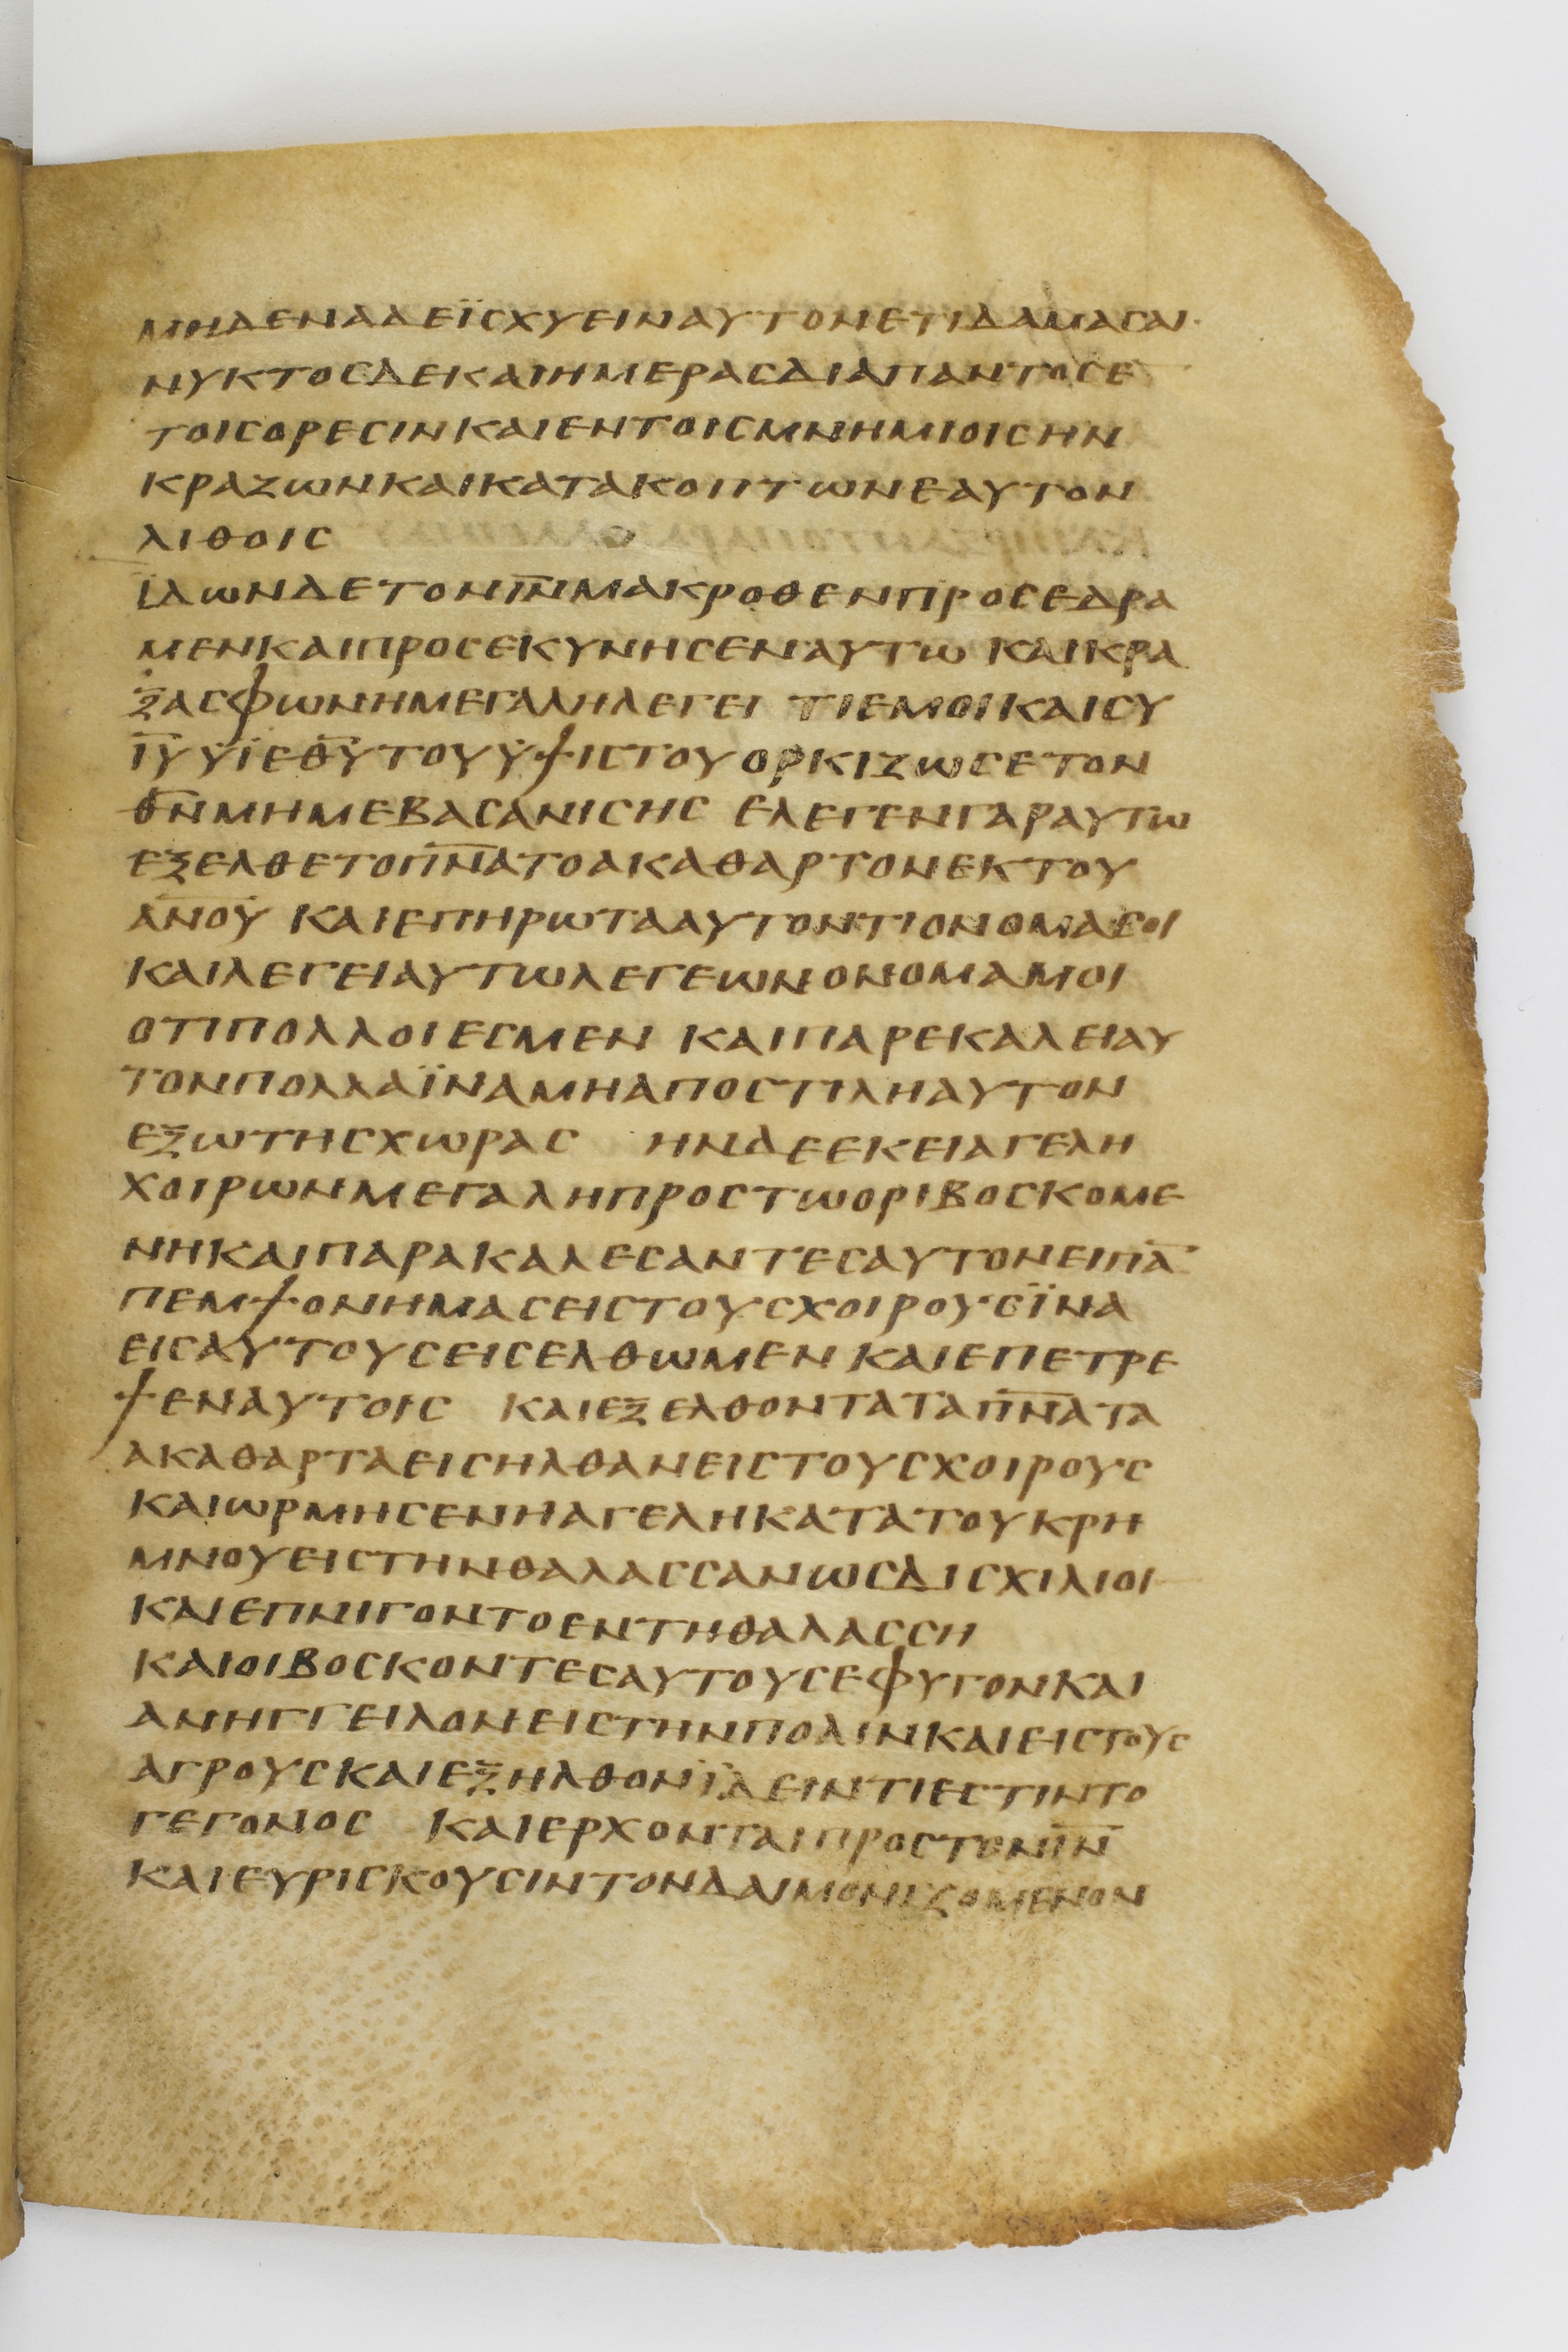 ΜΗΔΕΝΑΔΕΪСΧΥΕΙΝΑΥΤΟΝΕΤΙΔΑΜΑСΑΙ
ΝΥΚΤΟСΔΕΚΑΙΗΜΕΡΑСΔΙΑΠΑΝΤΟСΕ
ΤΟΙСΟΡΕСΙΝΚΑΙΕΝΤΟΙСΜΝΗΜΙΟΙСΗΝ
ΚΡΑΖΩΝΚΑΙΚΑΤΑΚΟΠΤΩΝΕΑΥΤΟΝ
ΛΙΘΟΙС
ΪΔΩΝΔΕΤΟΝΙ̅Ν̅ΜΑΚΡΟΘΕΝΠΡΟСΕΔΡΑ
ΜΕΝΚΑΙΠΡΟСΕΚΥΝΗСΕΝΑΥΤΩ ΚΑΙΚΡΑ
ΞΑСΦΩΝΗΜΕΓΑΛΗΛΕΓΕΙ ΤΙΕΜΟΙΚΑΙСΥ
Ι̅Υ̅ΥΪΕΘ̅Υ̅ΤΟΥΫΨΙСΤΟΥ ΟΡΚΙΖΩСΕΤΟΝ
Θ̅Ν̅ΜΗΜΕΒΑСΑΝΙСΗС ΕΛΕΓΕΝΓΑΡΑΥΤΩ
ΕΞΕΛΘΕΤΟΠ̅Ν̅Α̅ΤΟΑΚΑΘΑΡΤΟΝΕΚΤΟΥ
Α̅Ν̅ΟΥ̅ ΚΑΙΕΠΗΡΩΤΑΑΥΤΟΝΤΙΟΝΟΜΑСΟΙ
ΚΑΙΛΕΓΕΙΑΥΤΩΛΕΓΕΩΝΟΝΟΜΑΜΟΙ
ΟΤΙΠΟΛΛΟΙΕСΜΕΝ ΚΑΙΠΑΡΕΚΑΛΕΙΑΥ
ΤΟΝΠΟΛΛΑΪΝΑΜΗΑΠΟСΤΙΛΗΑΥΤΟΝ
ΕΞΩΤΗСΧΩΡΑС ΗΝΔΕΕΚΕΙΑΓΕΛΗ
ΧΟΙΡΩΝΜΕΓΑΛΗΠΡΟСΤΩΟΡΙΒΟСΚΟΜΕ
ΝΗΚΑΙΠΑΡΑΚΑΛΕСΑΝΤΕСΑΥΤΟΝΕΙΠΑ̅
ΠΕΜΨΟΝΗΜΑСΕΙСΤΟΥСΧΟΙΡΟΥСΪΝΑ
ΕΙСΑΥΤΟΥСΕΙСΕΛΘΩΜΕΝ ΚΑΙΕΠΕΤΡΕ
ΨΕΝΑΥΤΟΙС ΚΑΙΕΞΕΛΘΟΝΤΑΤΑΠ̅Ν̅Α̅ΤΑ
ΑΚΑΘΑΡΤΑΕΙСΗΛΘΑΝΕΙСΤΟΥСΧΟΙΡΟΥС
ΚΑΙΩΡΜΗСΕΝΗΑΓΕΛΗΚΑΤΑΤΟΥΚΡΗ
ΜΝΟΥΕΙСΤΗΝΘΑΛΑССΑΝΩСΔΙСΧΙΛΙΟΙ
ΚΑΙΕΠΝΙΓΟΝΤΟΕΝΤΗΘΑΛΑССΗ
ΚΑΙΟΙΒΟСΚΟΝΤΕСΑΥΤΟΥСΕΦΥΓΟΝΚΑΙ
ΑΝΗΓΓΕΙΛΟΝΕΙСΤΗΝΠΟΛΙΝΚΑΙΕΙСΤΟΥС
ΑΓΡΟΥСΚΑΙΕΞΗΛΘΟΝΪΔΕΙΝΤΙΕСΤΙΝΤΟ
ΓΕΓΟΝΟС ΚΑΙΕΡΧΟΝΤΑΙΠΡΟСΤΟΝΙ̅Ν̅
ΚΑΙΕΥΡΙСΚΟΥСΙΝΤΟΝΔΑΙΜΟΝΙΖΟΜΕΝΟΝ